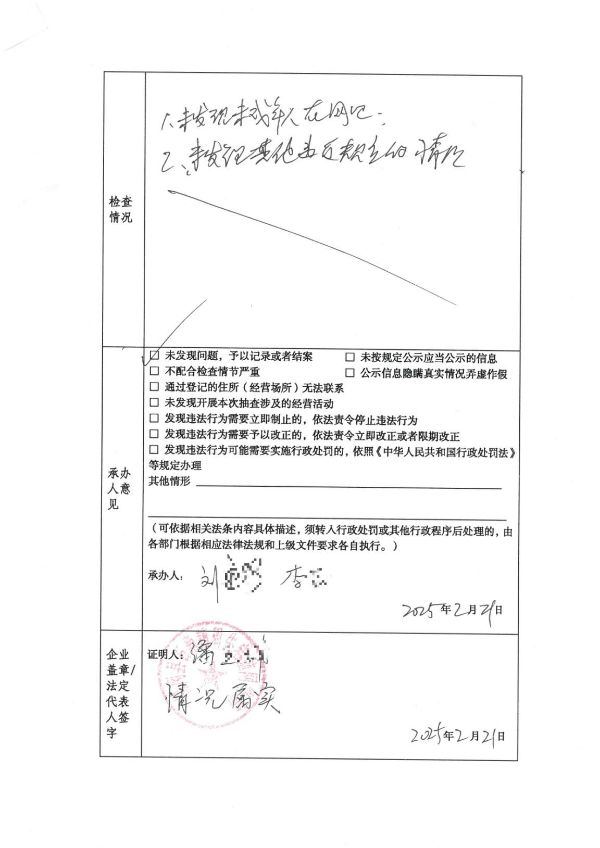 检查
情况
1、未发现未成年人在网吧;
2、未发现其他违反规定的情况
承办
人意
见
□ 未发现问题，予以记录或者结案
□ 未按规定公示应当公示的信息
□ 不配合检查情节严重
□ 公示信息隐瞒真实情况弄虚作假
□ 通过登记的住所（经营场所）无法联系
□ 未发现开展本次抽查涉及的经营活动
□ 发现违法行为需要立即制止的，依法责令停止违法行为
□ 发现违法行为需要予以改正的，依法责令立即改正或者限期改正
□ 发现违法行为可能需要实施行政处罚的，依照《中华人民共和国行政处罚法》
等规定办理
其他情形
（可依据相关法条内容具体描述，须转入行政处罚或其他行政程序后处理的，由
各部门根据相应法律法规和上级文件要求各自执行。）
承办人： 刘 李
2025年2月21日
企业
盖章/
法定
代表
人签
字
证明人：
情况属实
2025年2月21日